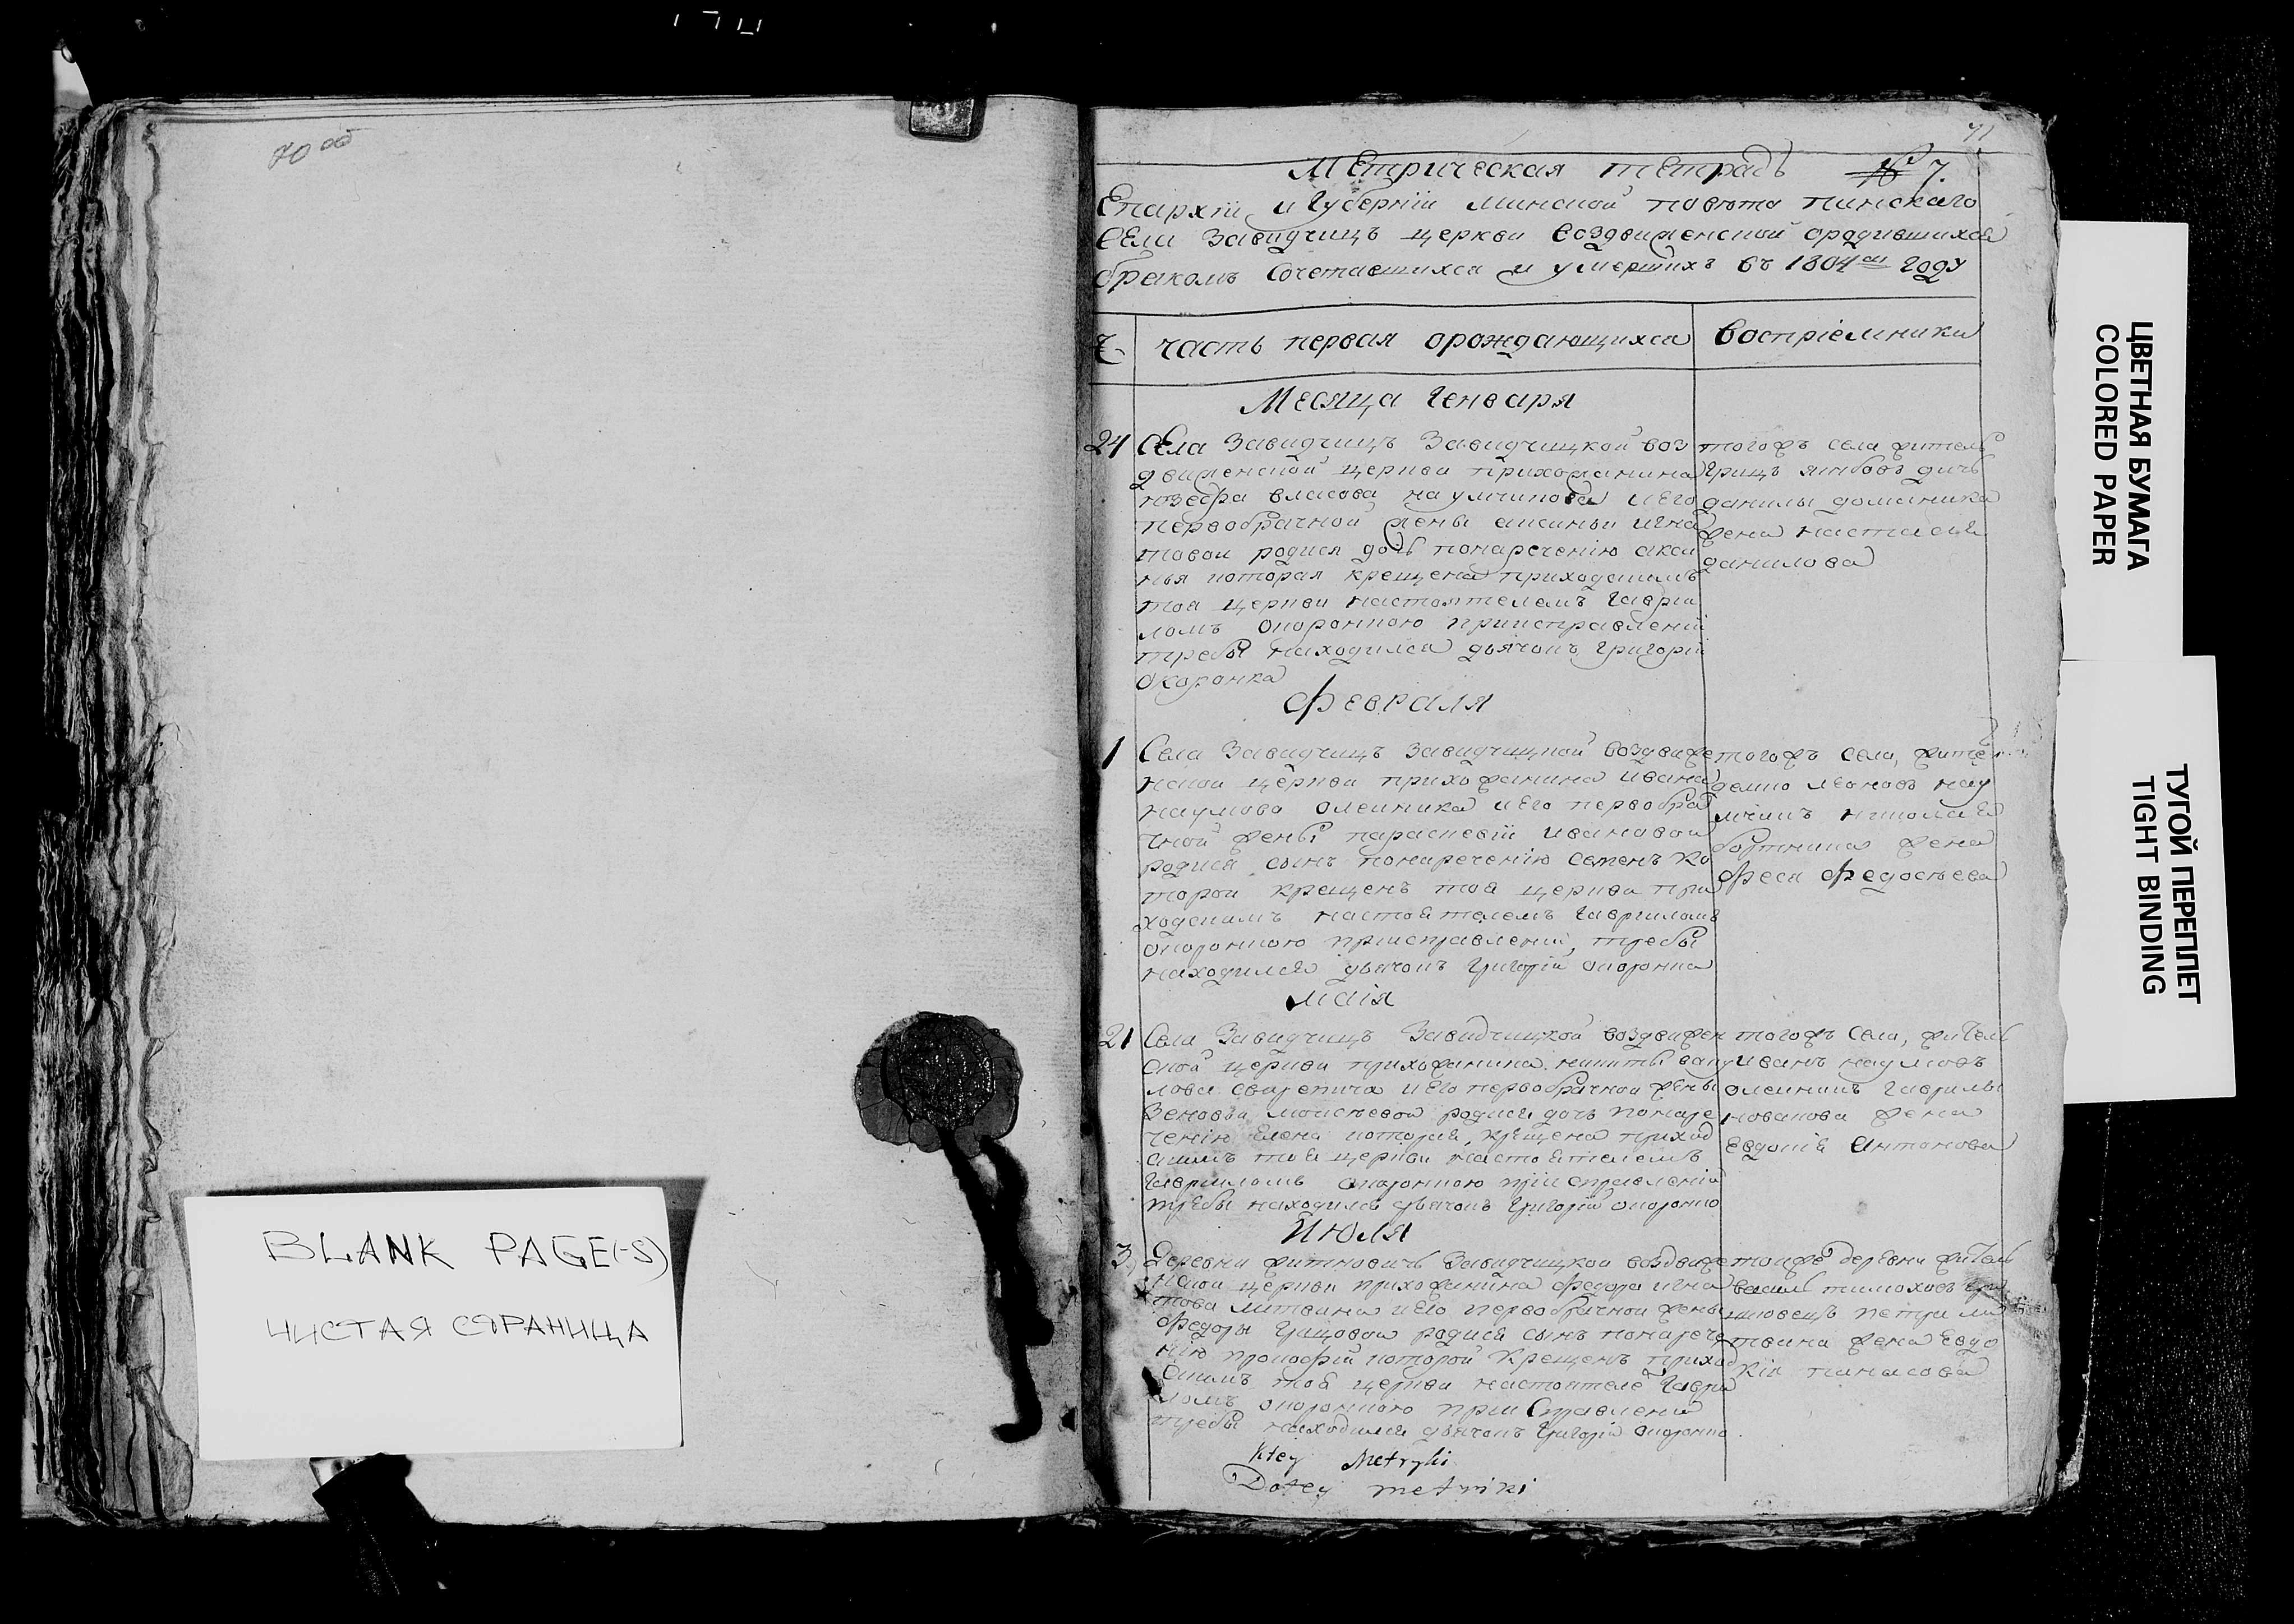 70 об
BLANK PAGE(-S)
ЧИСТАЯ СТРАНИЦА
71
Метрическая тетрадь № 7.
Епархіи и Губерніи минской повѣта пинскаго
Села Завидчицъ церкви воздвиженской ородившихся
бракомъ Сочетавшихся и умершихъ въ 1804 году
Ч
часть первая орождающихся
восприемники
Месяца Генваря
24
Села Завидчицъ Завидчицкой воз
движенской церкви прихожанина
власова наумчика и его
первобрачной жены аксиньи игна
товой родися дочь понаречению акси
нья которая крещена приходскимъ
той церкви настоятелемъ гаврии
ломъ окоронкою приисправлении
требы находился дьячокъ григорій
окоронка
тогожъ села житель
данилы доминика
жена настасия
данилова
Февраля
1
Села Завидчицъ завидчицкой воздвиже
нской церкви прихожанина ивана
наумова олейника и его первобра
чной жены параскевіи ивановой
родися сынъ понаречению семенъ ко
торой крещенъ той церкви при
ходскимъ настоятелемъ гавриломъ
окоронкою приисправлении требы
находился дьячокъ григорій окоронка
тогожъ села, жите
демко леоновъ нау
мчикъ николая
бортника жена
феся федосѣева
маія
21
Села Завидчицъ Завидчицкой воздвижен
ской церкви прихожанина никиты
и его первобрачной жены
родися дочь понаре
чению елена которая крещена приход
скимъ той церкви настоятелемъ
гавриломъ окоронкою приисправлении
требы находился дьячокъ григорій окоронко
тогожъ Села, житель
иванъ наумовъ
олейникъ гаврилы
жена
евдокия антонова
Июля
3
Деревни житновичъ Завидчицкой воздвиже
нской церкви прихожанина федора игна
това литвина и его первобрачной жены
федоры грицовой родися сынъ понарече
нию прокофій которой крещенъ приход
скимъ той церкви настоятеле гаври
ломъ окоронкою при исправлении
требы находился дьячокъ григорій окоронко
тойже деревни житель
василь тимоховъ
петра ли
твина жена евдо
кія панасова
Ktey Metryki
Dotey metriki
ЦВЕТНАЯ БУМАГА
COLORED PAPER
ТУГОЙ ПЕРЕПЛЕТ
TIGHT BINDING